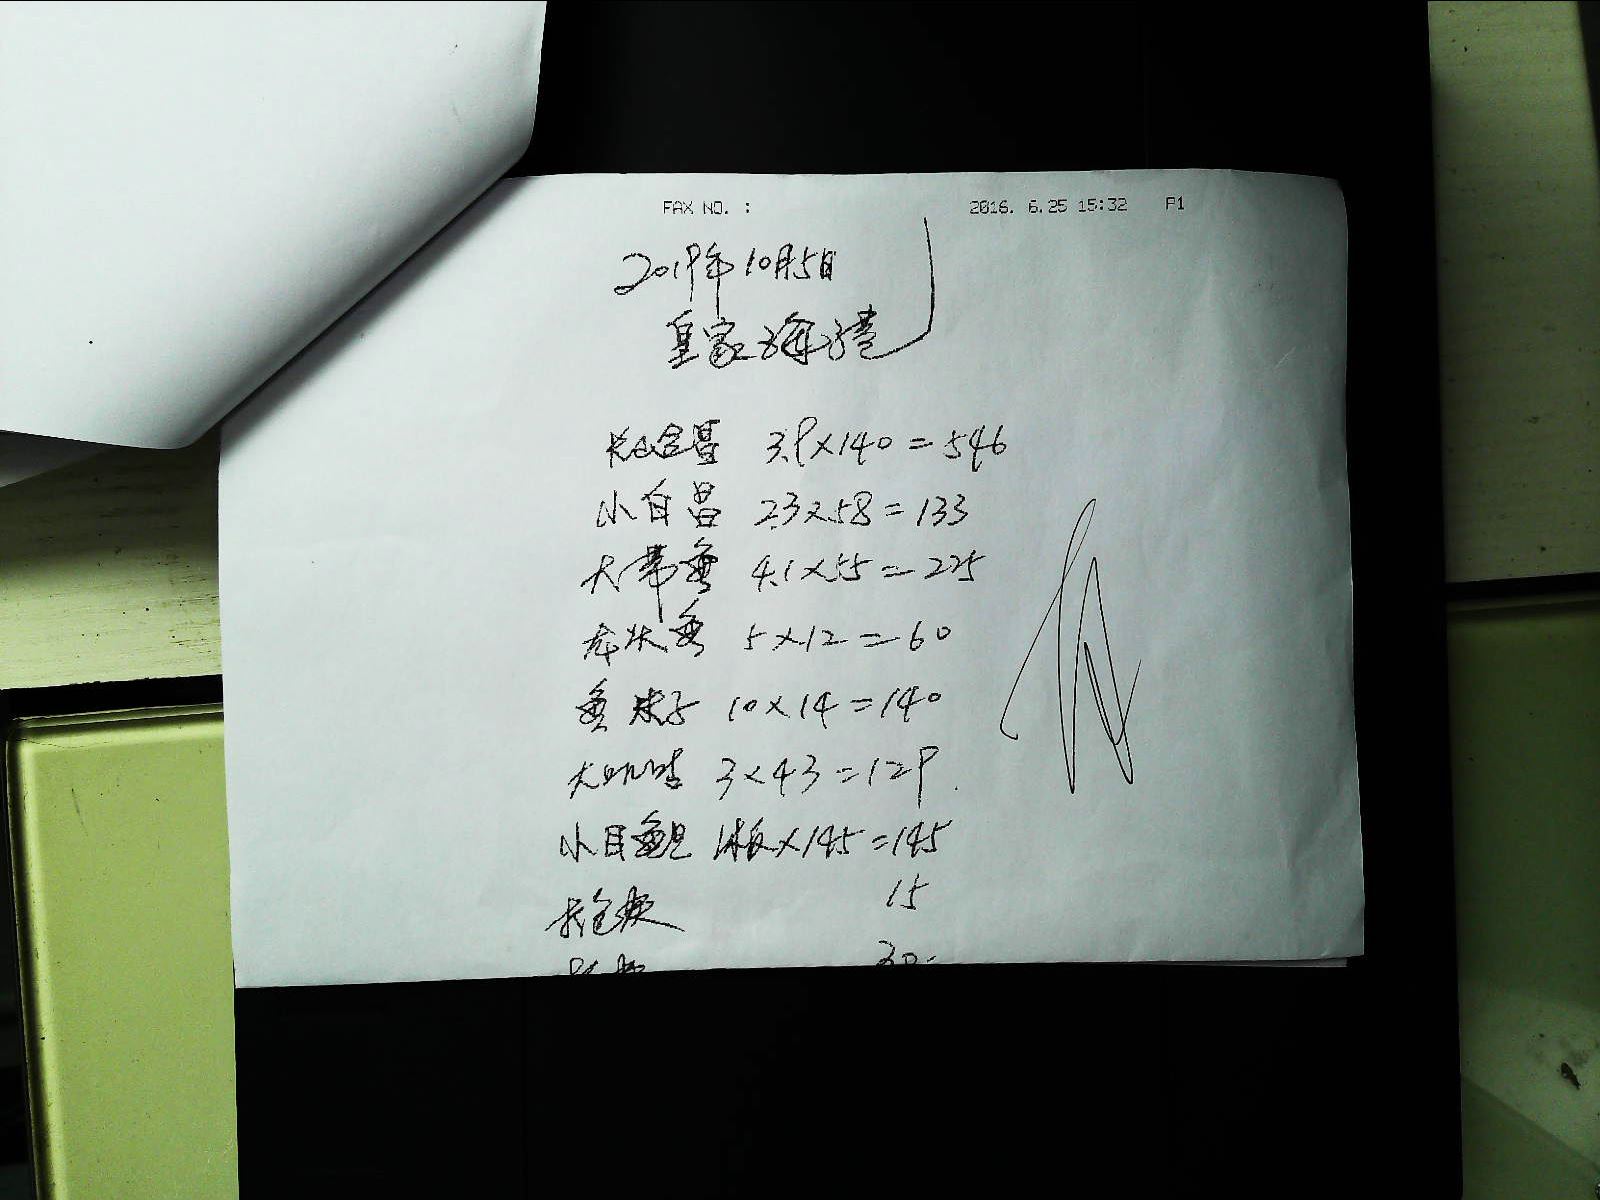 FAX NO. : 2016. 6.25 15:32 P1
2019年10月5日
皇家海湾
3.9×140=546
小白昌 2.3×58=133
大带鱼 4.1×55=225
龙头鱼 5×12=60
鱼 子 10×14=140
大 3×43=129
小目鱼 1板×145=145
15
30